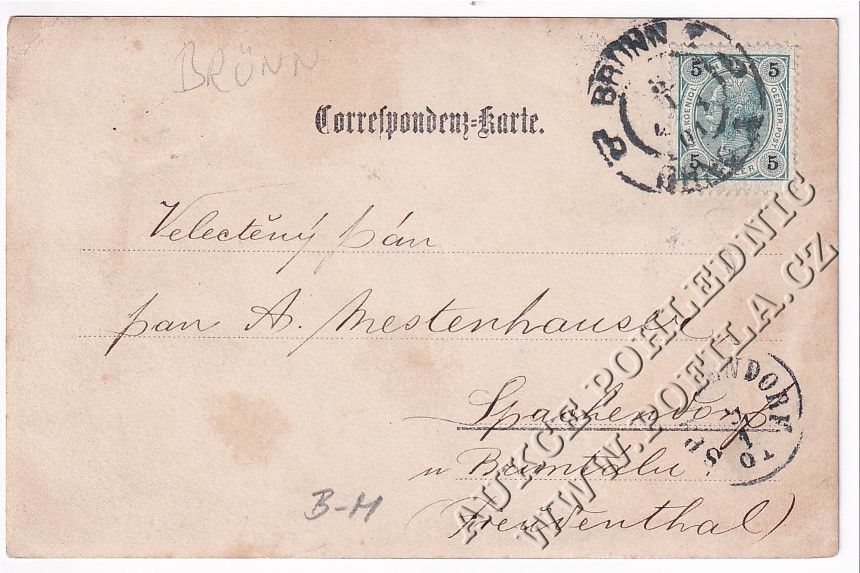 BRÜNN
Correspondenz-Karte.
BRÜNN
5 5
OESTERR.POST
5 5
Velectěný pán
pan A. Mestenhauser
Spachendorf
u Bruntálu.
(Freudenthal)
NDORF
SP
B-H
AUKCE POHLEDNIC
WWW.POETLA.CZ